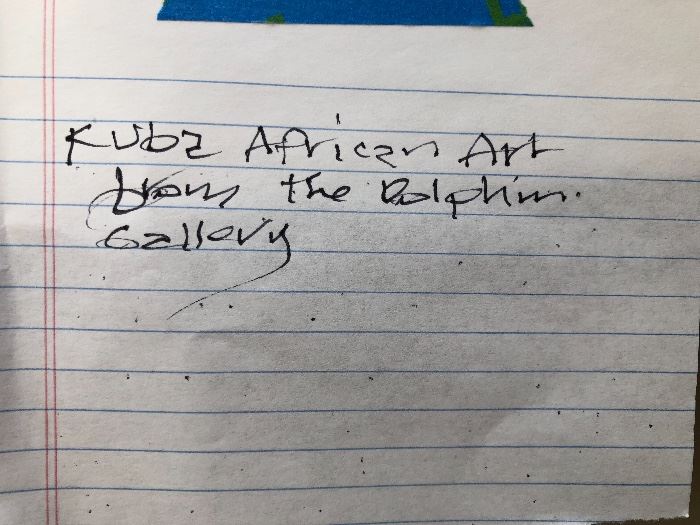 Kuba African Art
from the Dolphin.
Gallery